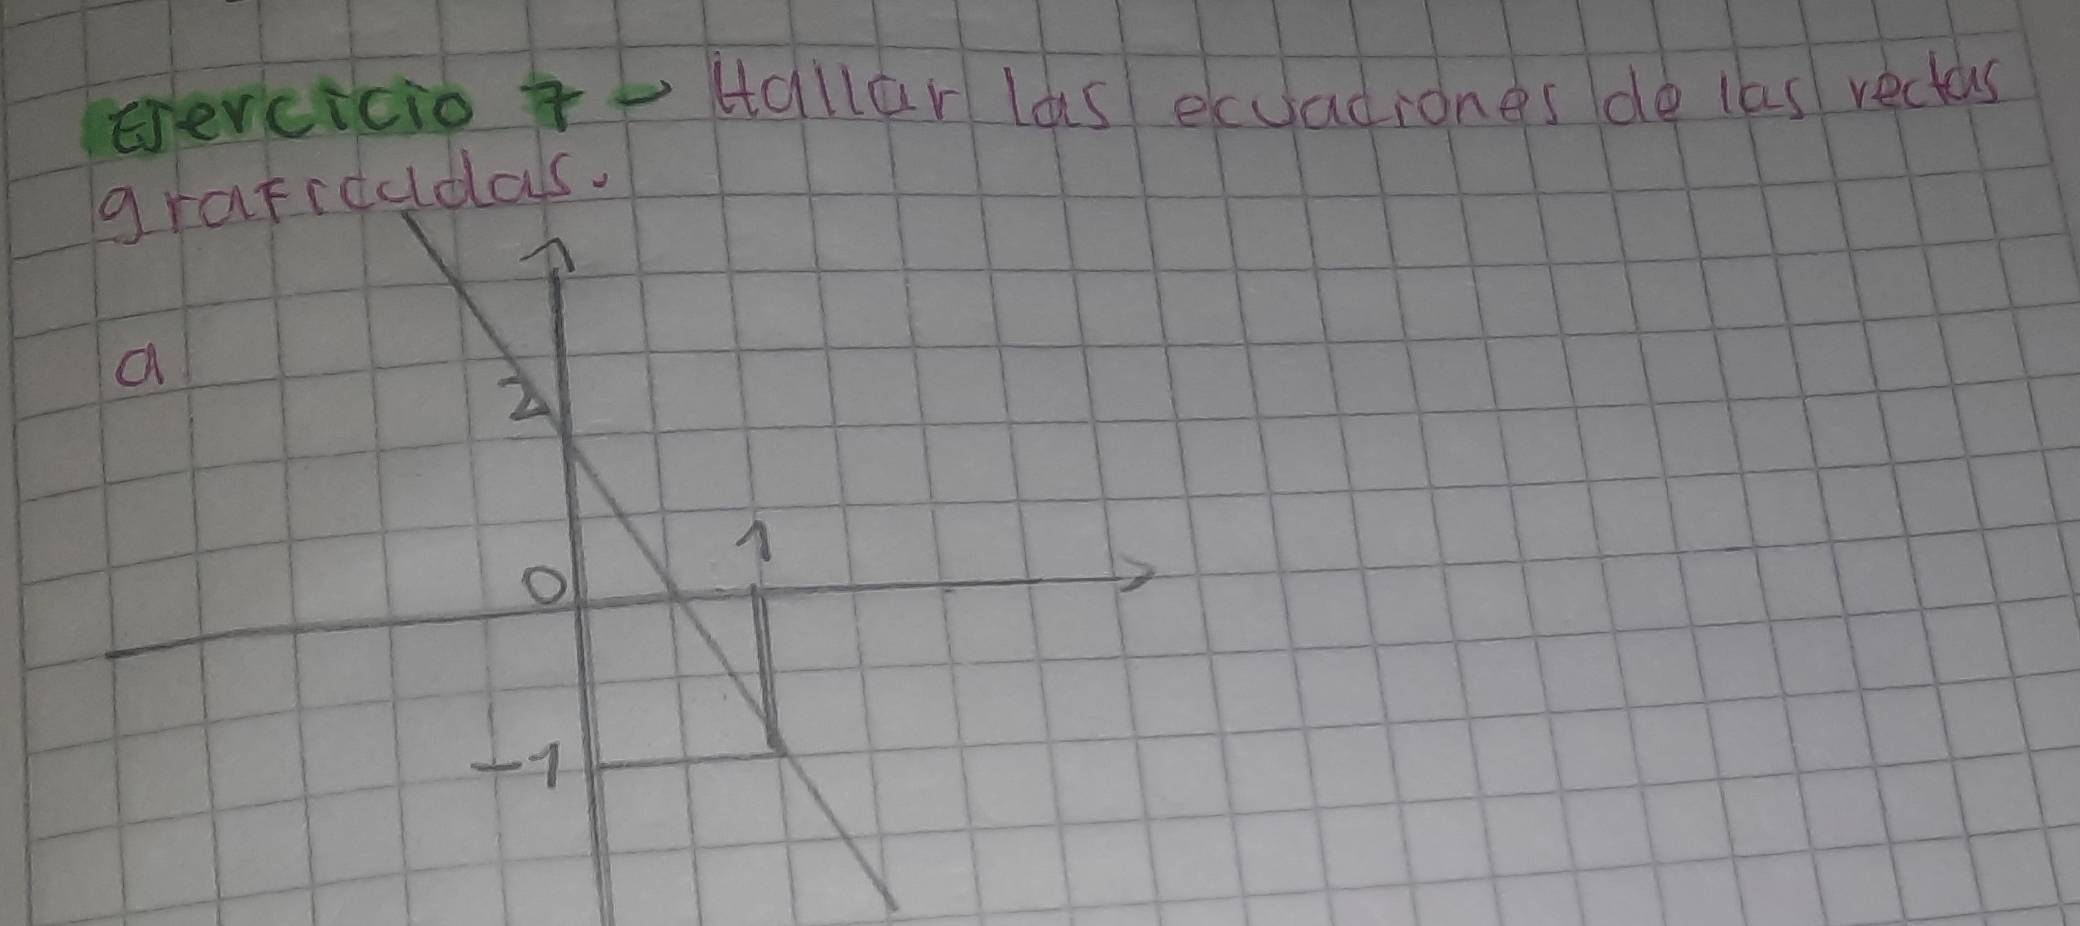 Ejercicio 7 - Hallar las ecuaciones de las rectas
graficadas.
a
2
1
0
-1